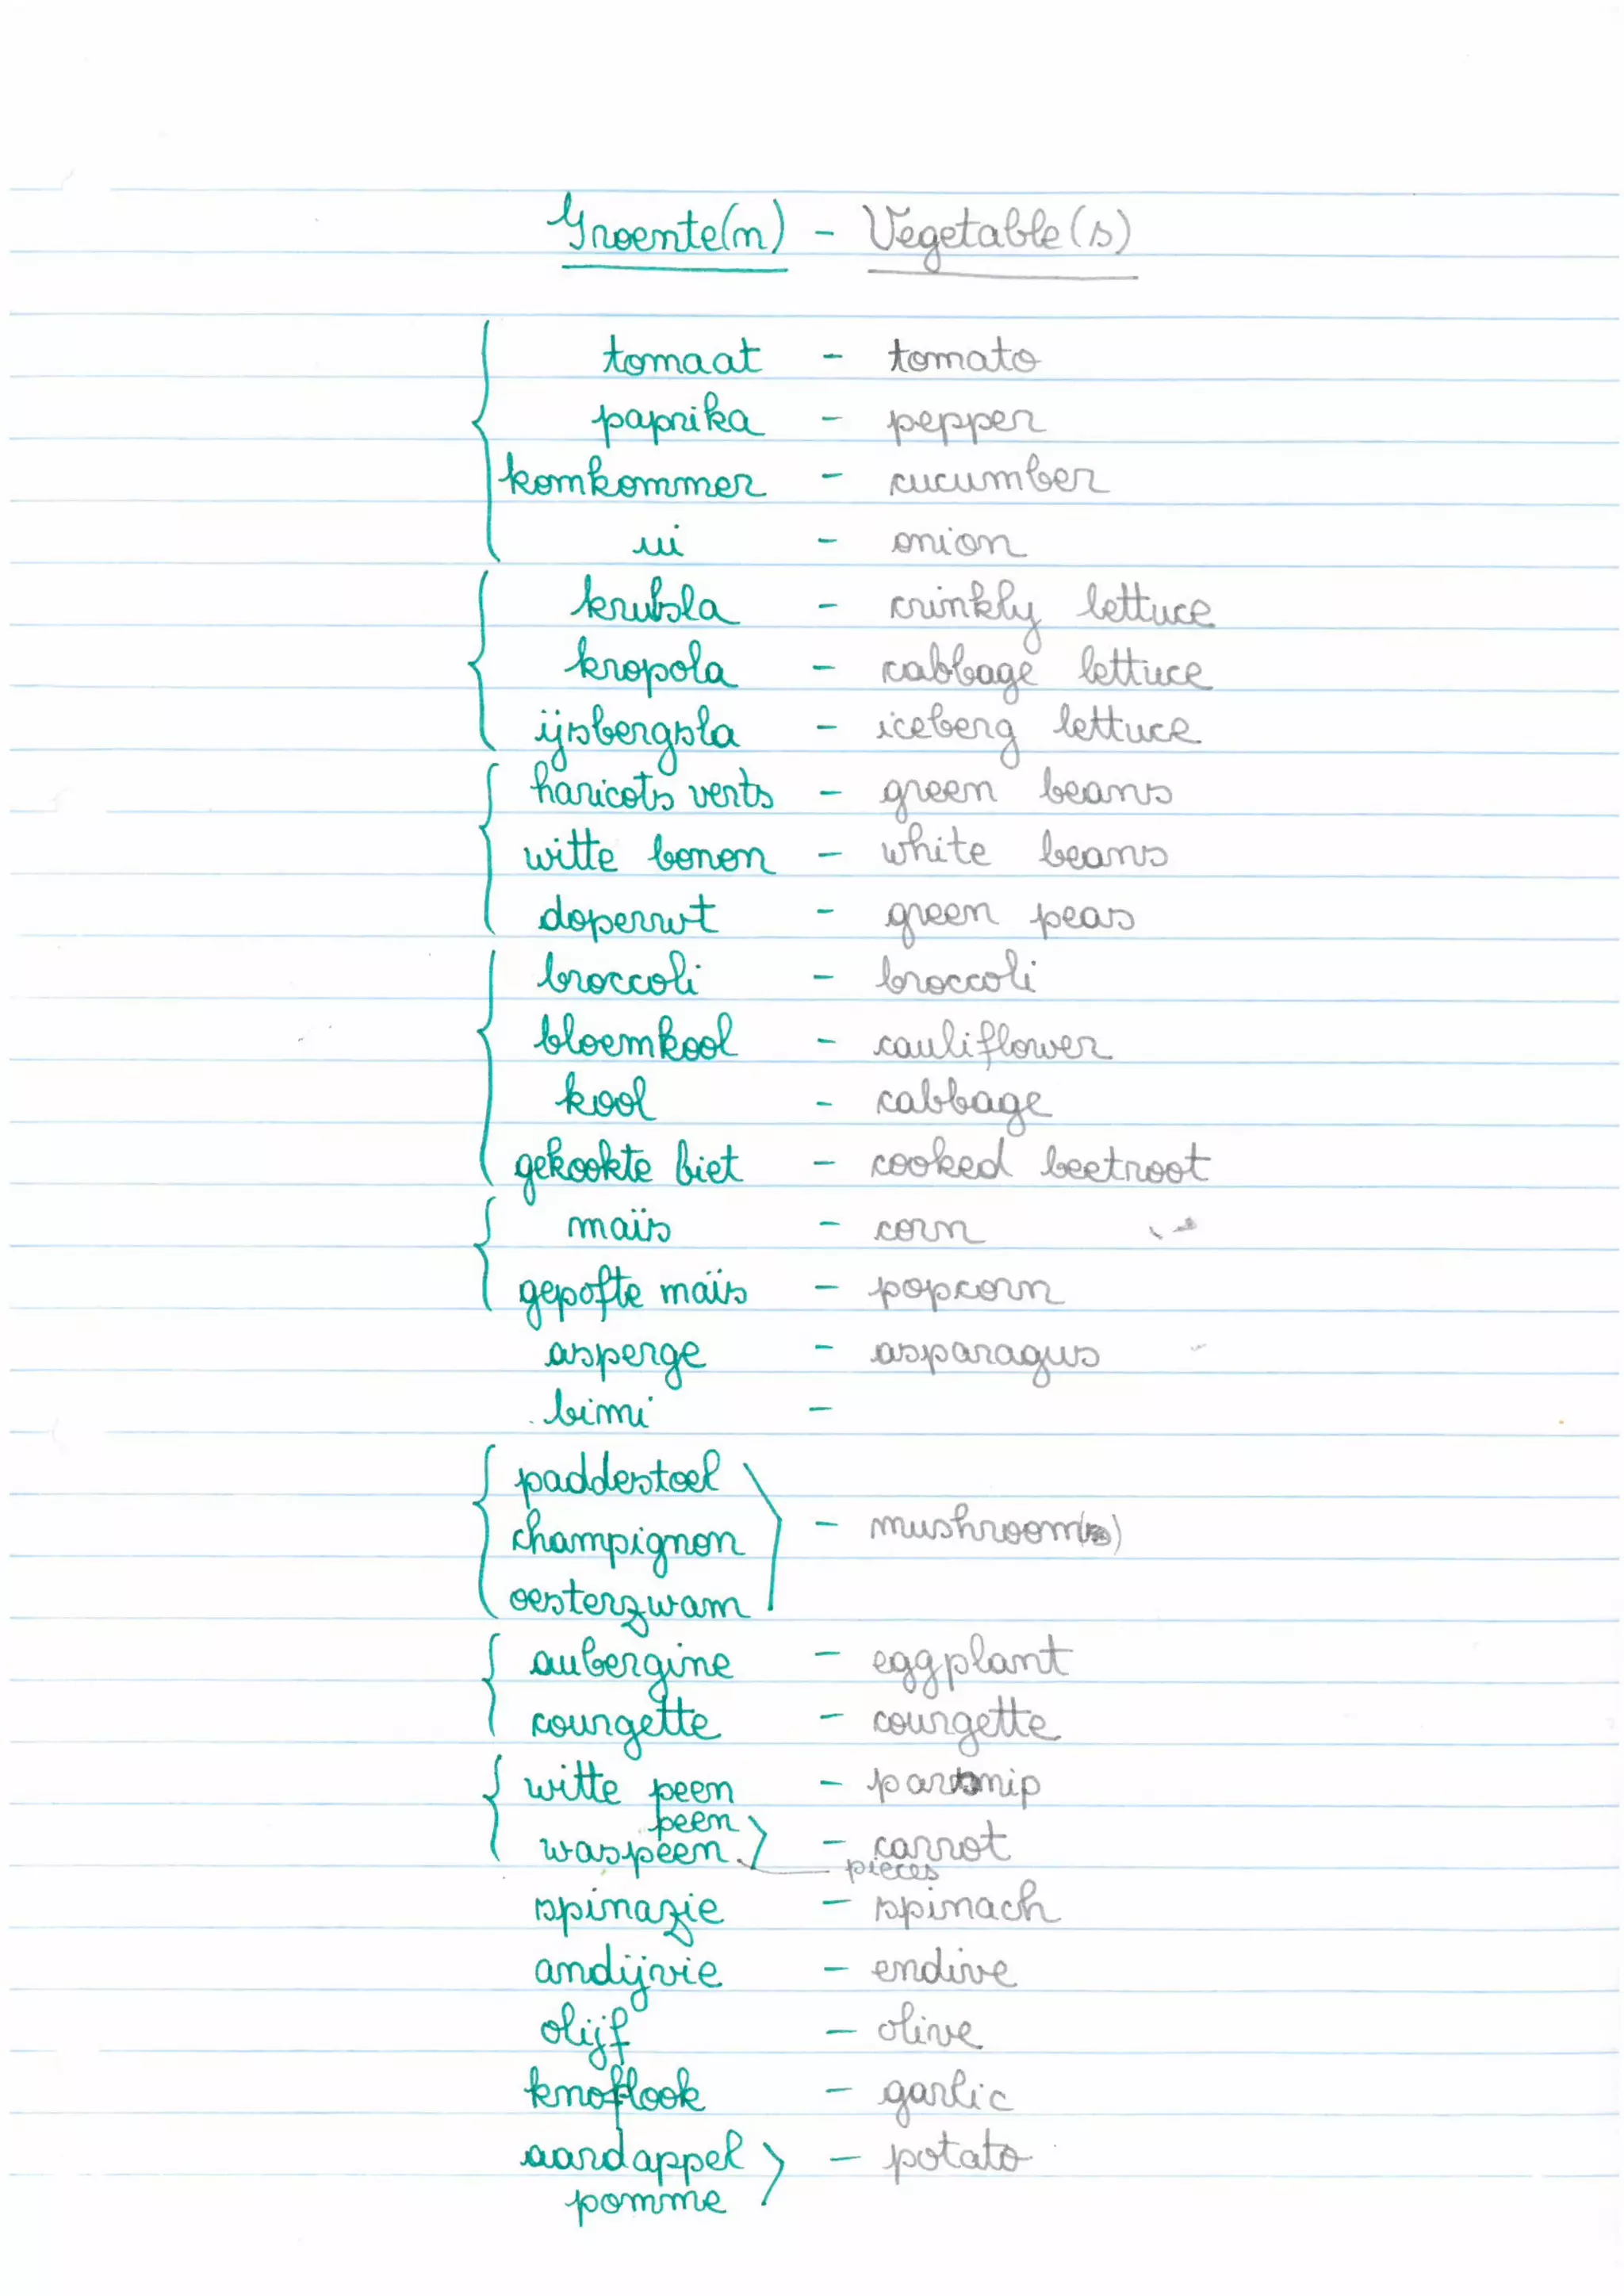 Groente(n) - Vegetable(s)
tomaat - tomato
paprika - pepper
komkommer - cucumber
ui - onion
krulsla - crinkly lettuce
kropsla - cabbage lettuce
ijsbergsla - iceberg lettuce
haricots verts - green beans
witte bonen - white beans
doperwt - green peas
broccoli - broccoli
bloemkool - cauliflower
kool - cabbage
gekookte biet - cooked beetroot
maïs - corn
gepofte maïs - popcorn
asperge - asparagus
bimi -
paddestoel
champignon - mushroom(s)
oesterzwam
aubergine - eggplant
courgette - courgette
witte peen - parsnip
peen
waspeen - carrot
pieces
spinazie - spinach
andijvie - endive
olijf - olive
knoflook - garlic
aardappel - potato
pomme